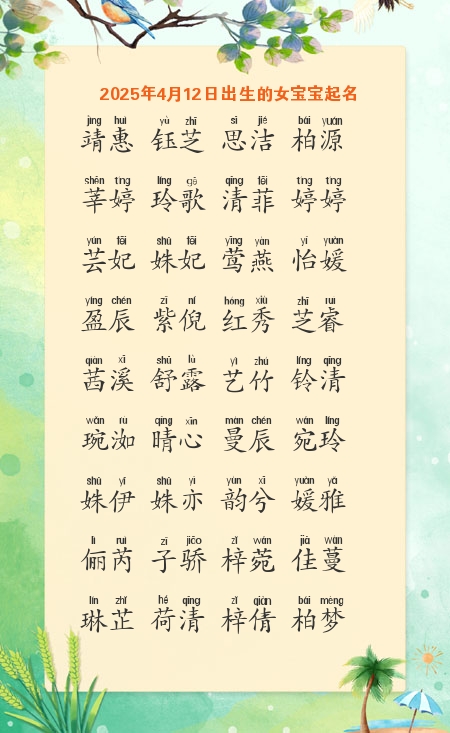 2025年4月12日出生的女宝宝起名
jìng huì yù zhī sī jié bái yuán
靖惠 钰芝 思洁 柏源
shēn tíng líng gē qīng fēi tíng tíng
莘婷 玲歌 清菲 婷婷
yún fēi shū fēi yīng yàn yí yuàn
芸妃 姝妃 莺燕 怡媛
yíng chén zǐ ní hóng xiù zhī ruì
盈辰 紫倪 红秀 芝睿
qiàn xī shū lù yì zhú líng qīng
茜溪 舒露 艺竹 铃清
wǎn rù qíng xīn màn chén wǎn líng
琬洳 晴心 曼辰 宛玲
shū yī shū yì yùn xī yuàn yǎ
姝伊 姝亦 韵兮 媛雅
lì ruì zǐ jiāo zǐ wǎn jiā màn
俪芮 子骄 梓菀 佳蔓
lín zhǐ hé qīng zǐ qiàn bái mèng
琳芷 荷清 梓倩 柏梦